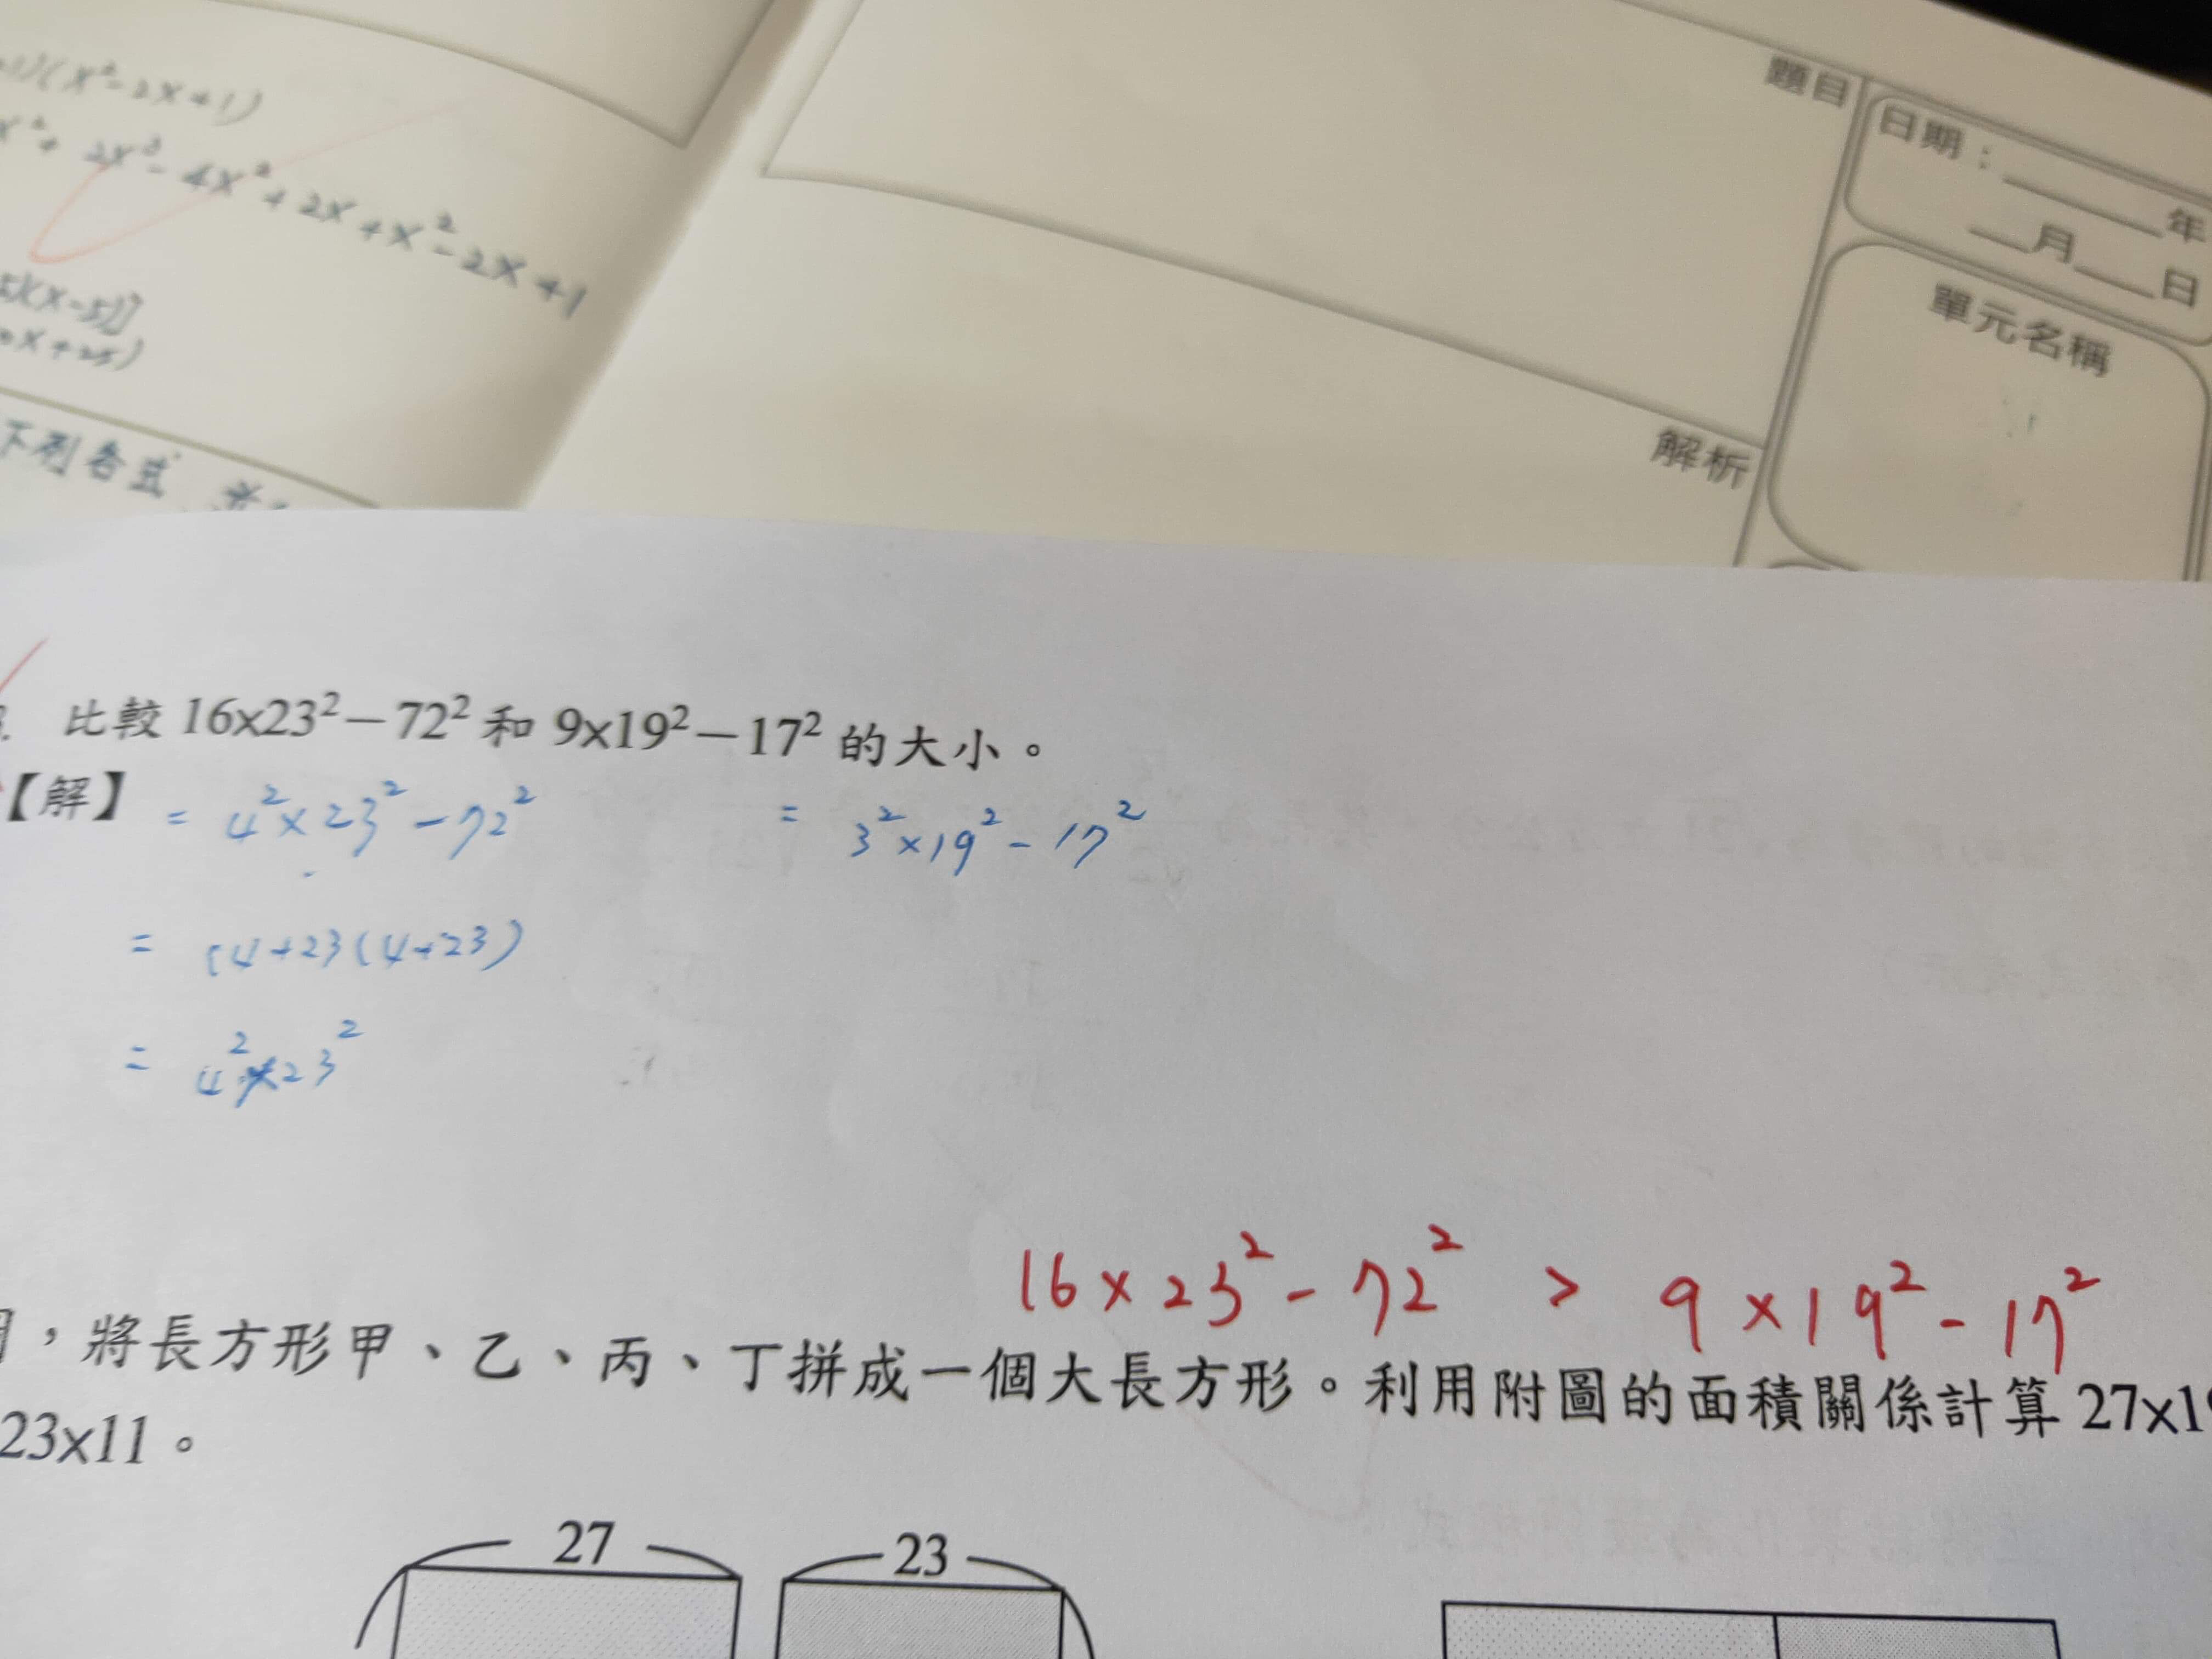 (x²-2x+1)
2x³-4x²+2x+x²-2x+1
(x-5)]
x+25)
下列各式
題目
日期：____年
__月__日
單元名稱
解析
比較 16x23²－72² 和 9x19²－17² 的大小。
【解】 = 4²×23²-72² = 3²×19²-17²
= (4+23(4+23)
= 4²×23²
16×23²-72² > 9×19²-17²
，將長方形甲、乙、丙、丁拼成一個大長方形。利用附圖的面積關係計算 27x1
23x11。
27 23